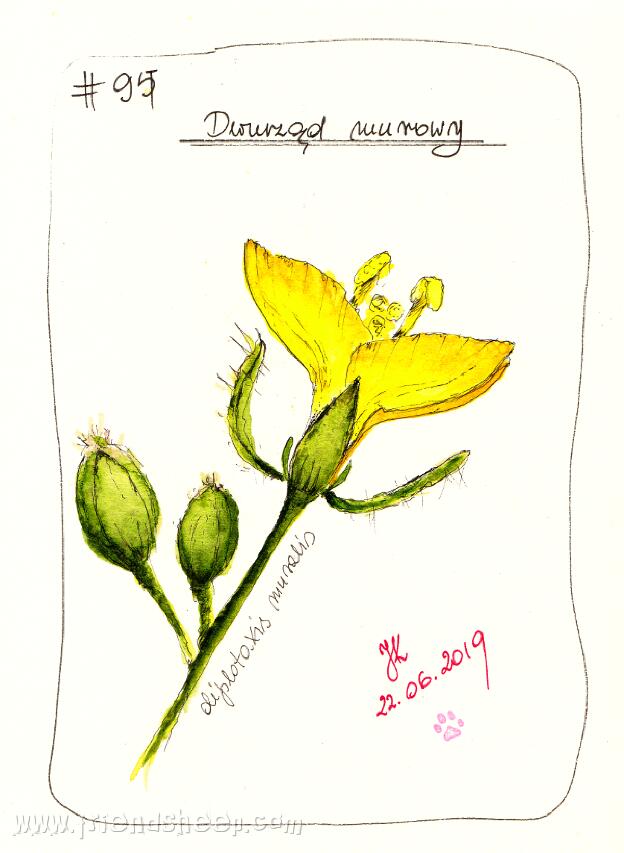 #95
Dwurząd murowy
diplotaxis muralis
JK
22.06.2019
www.friendsheep.com